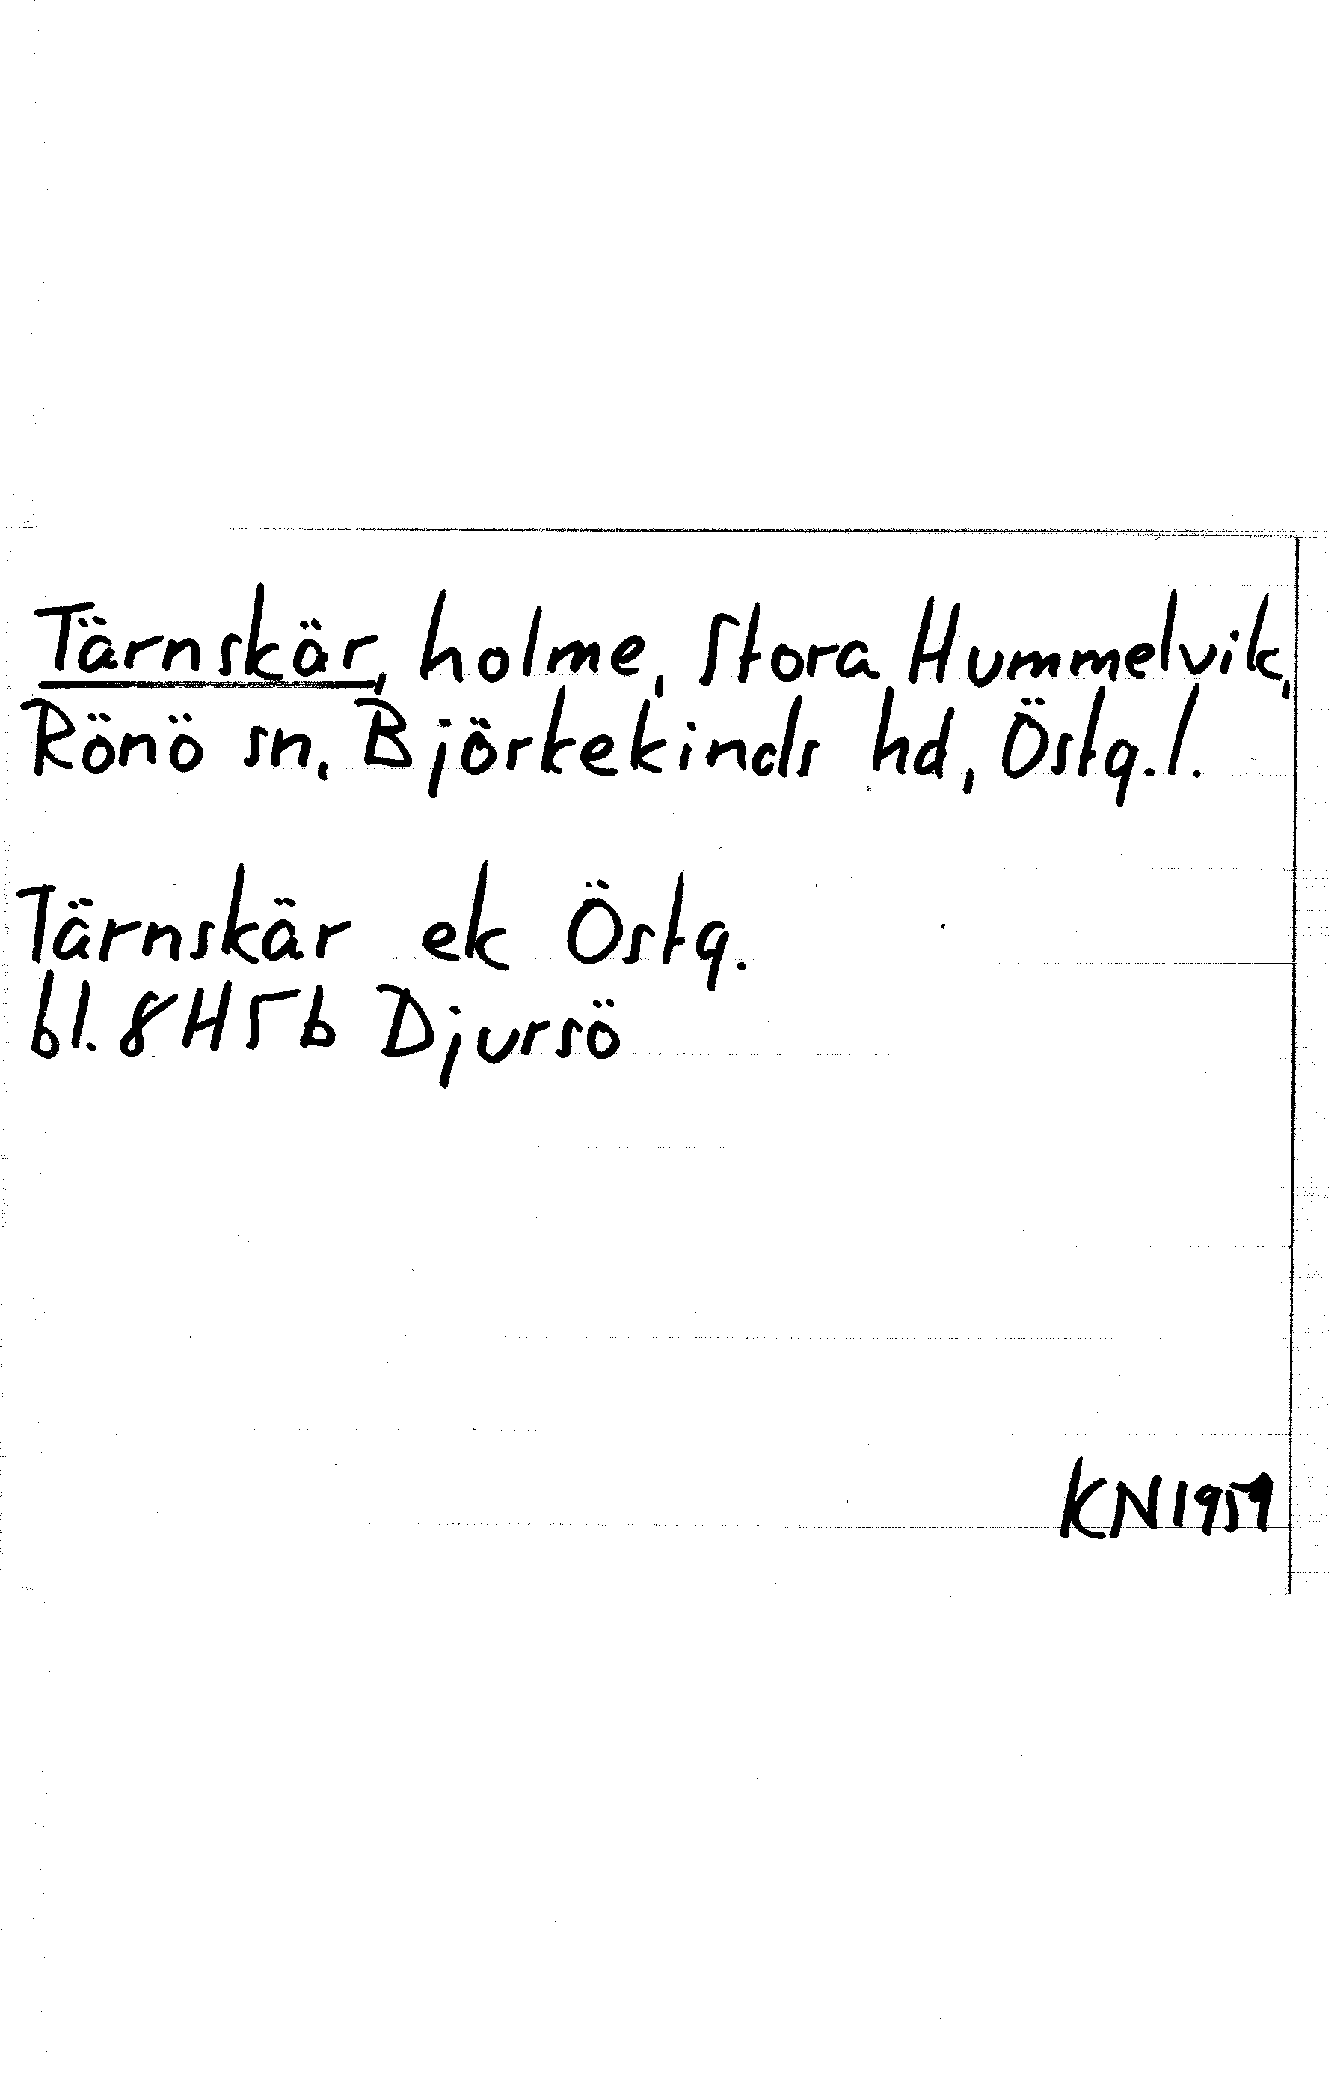 Tärnskär, holme, Stora Hummelvik,
Rönö sn, Björkekinds hd, Östg.l.
Tärnskär ek Östg.
bl. 8H5b Djursö
KN1959